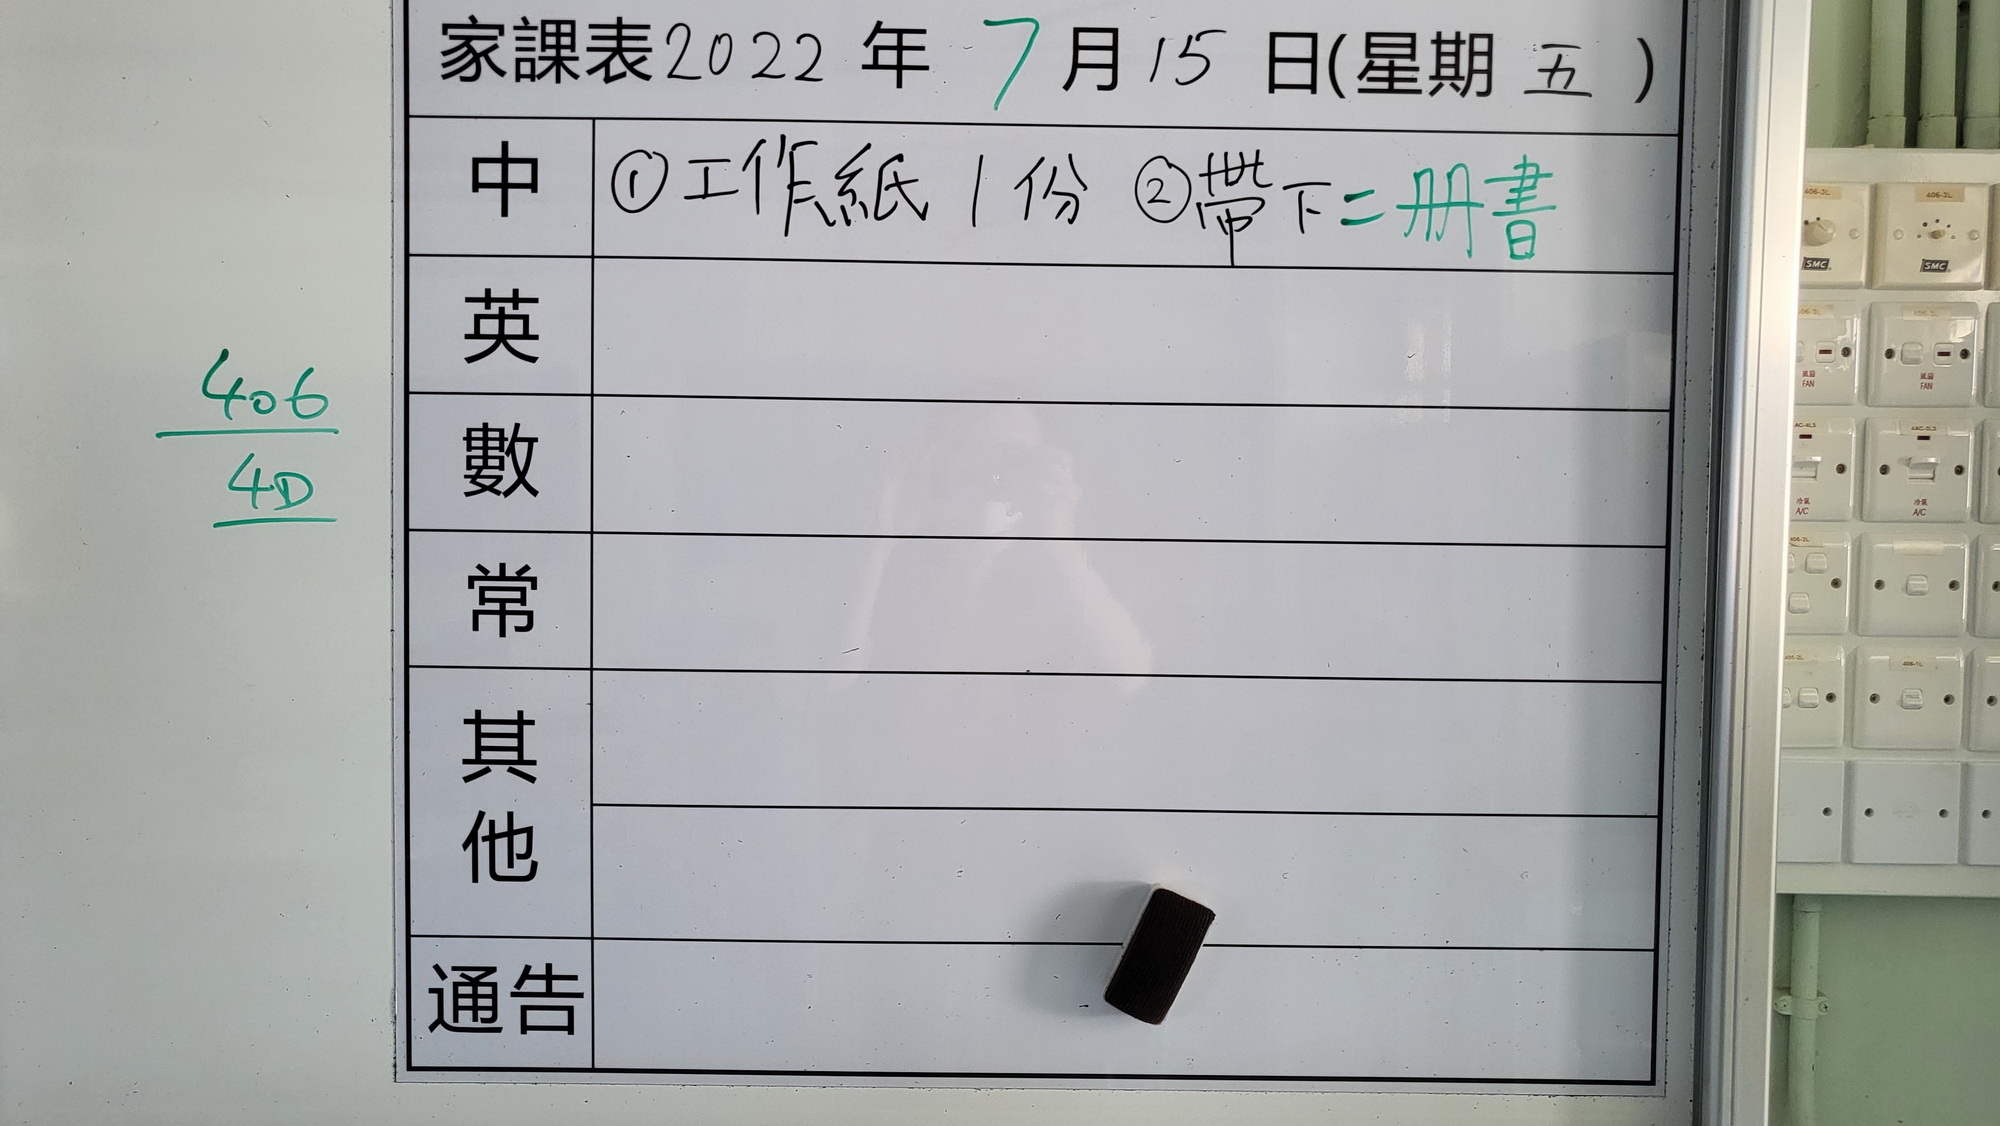 家課表2022 年 7 月 15 日(星期 五 )
中 ①工作紙 1 份 ②帶下二冊書
英
數
常
其他
通告
406
4D
406-2L
SMC
SMC
風扇
FAN
風扇
FAN
冷氣
A/C
冷氣
A/C
406-1L